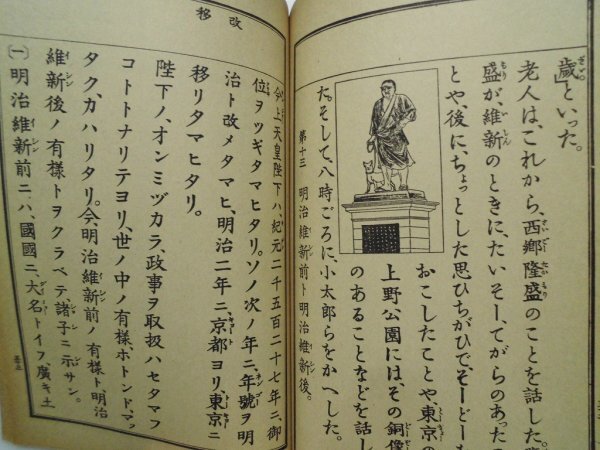 歳」といった。
老人は、これから、西郷隆盛のことを話した。
盛が、維新のときに、たいそーてがらのあった
とや、後に、ちょっとした思ひちがひで、そーどー
おこしたことや、東京の
上野公園にはその銅像
のあることなどを話し
た。そして、八時ごろに、小太郎らをかへした。
第十三 明治維新前ト明治維新後。
今上天皇陛下ハ、紀元二千五百二十七年ニ、御
位ヲツギタマヒタリ。ソノ次ノ年ニ、年號ヲ明
治ト改メタマヒ、明治二年ニ、京都ヨリ、東京ニ
移リタマヒタリ。
陛下ノ、オンミヅカラ、政事ヲ取扱ハセタマフ
コトトナリテヨリ、世ノ中ノ有様、ホトンド、マッ
タク、カハリタリ。今、明治維新前ノ有様ト、明治
維新後ノ有様トヲクラベテ、諸子ニ示サン。
(一)明治維新前ニハ、國國ニ、大名トイフ、廣キ土
改
移